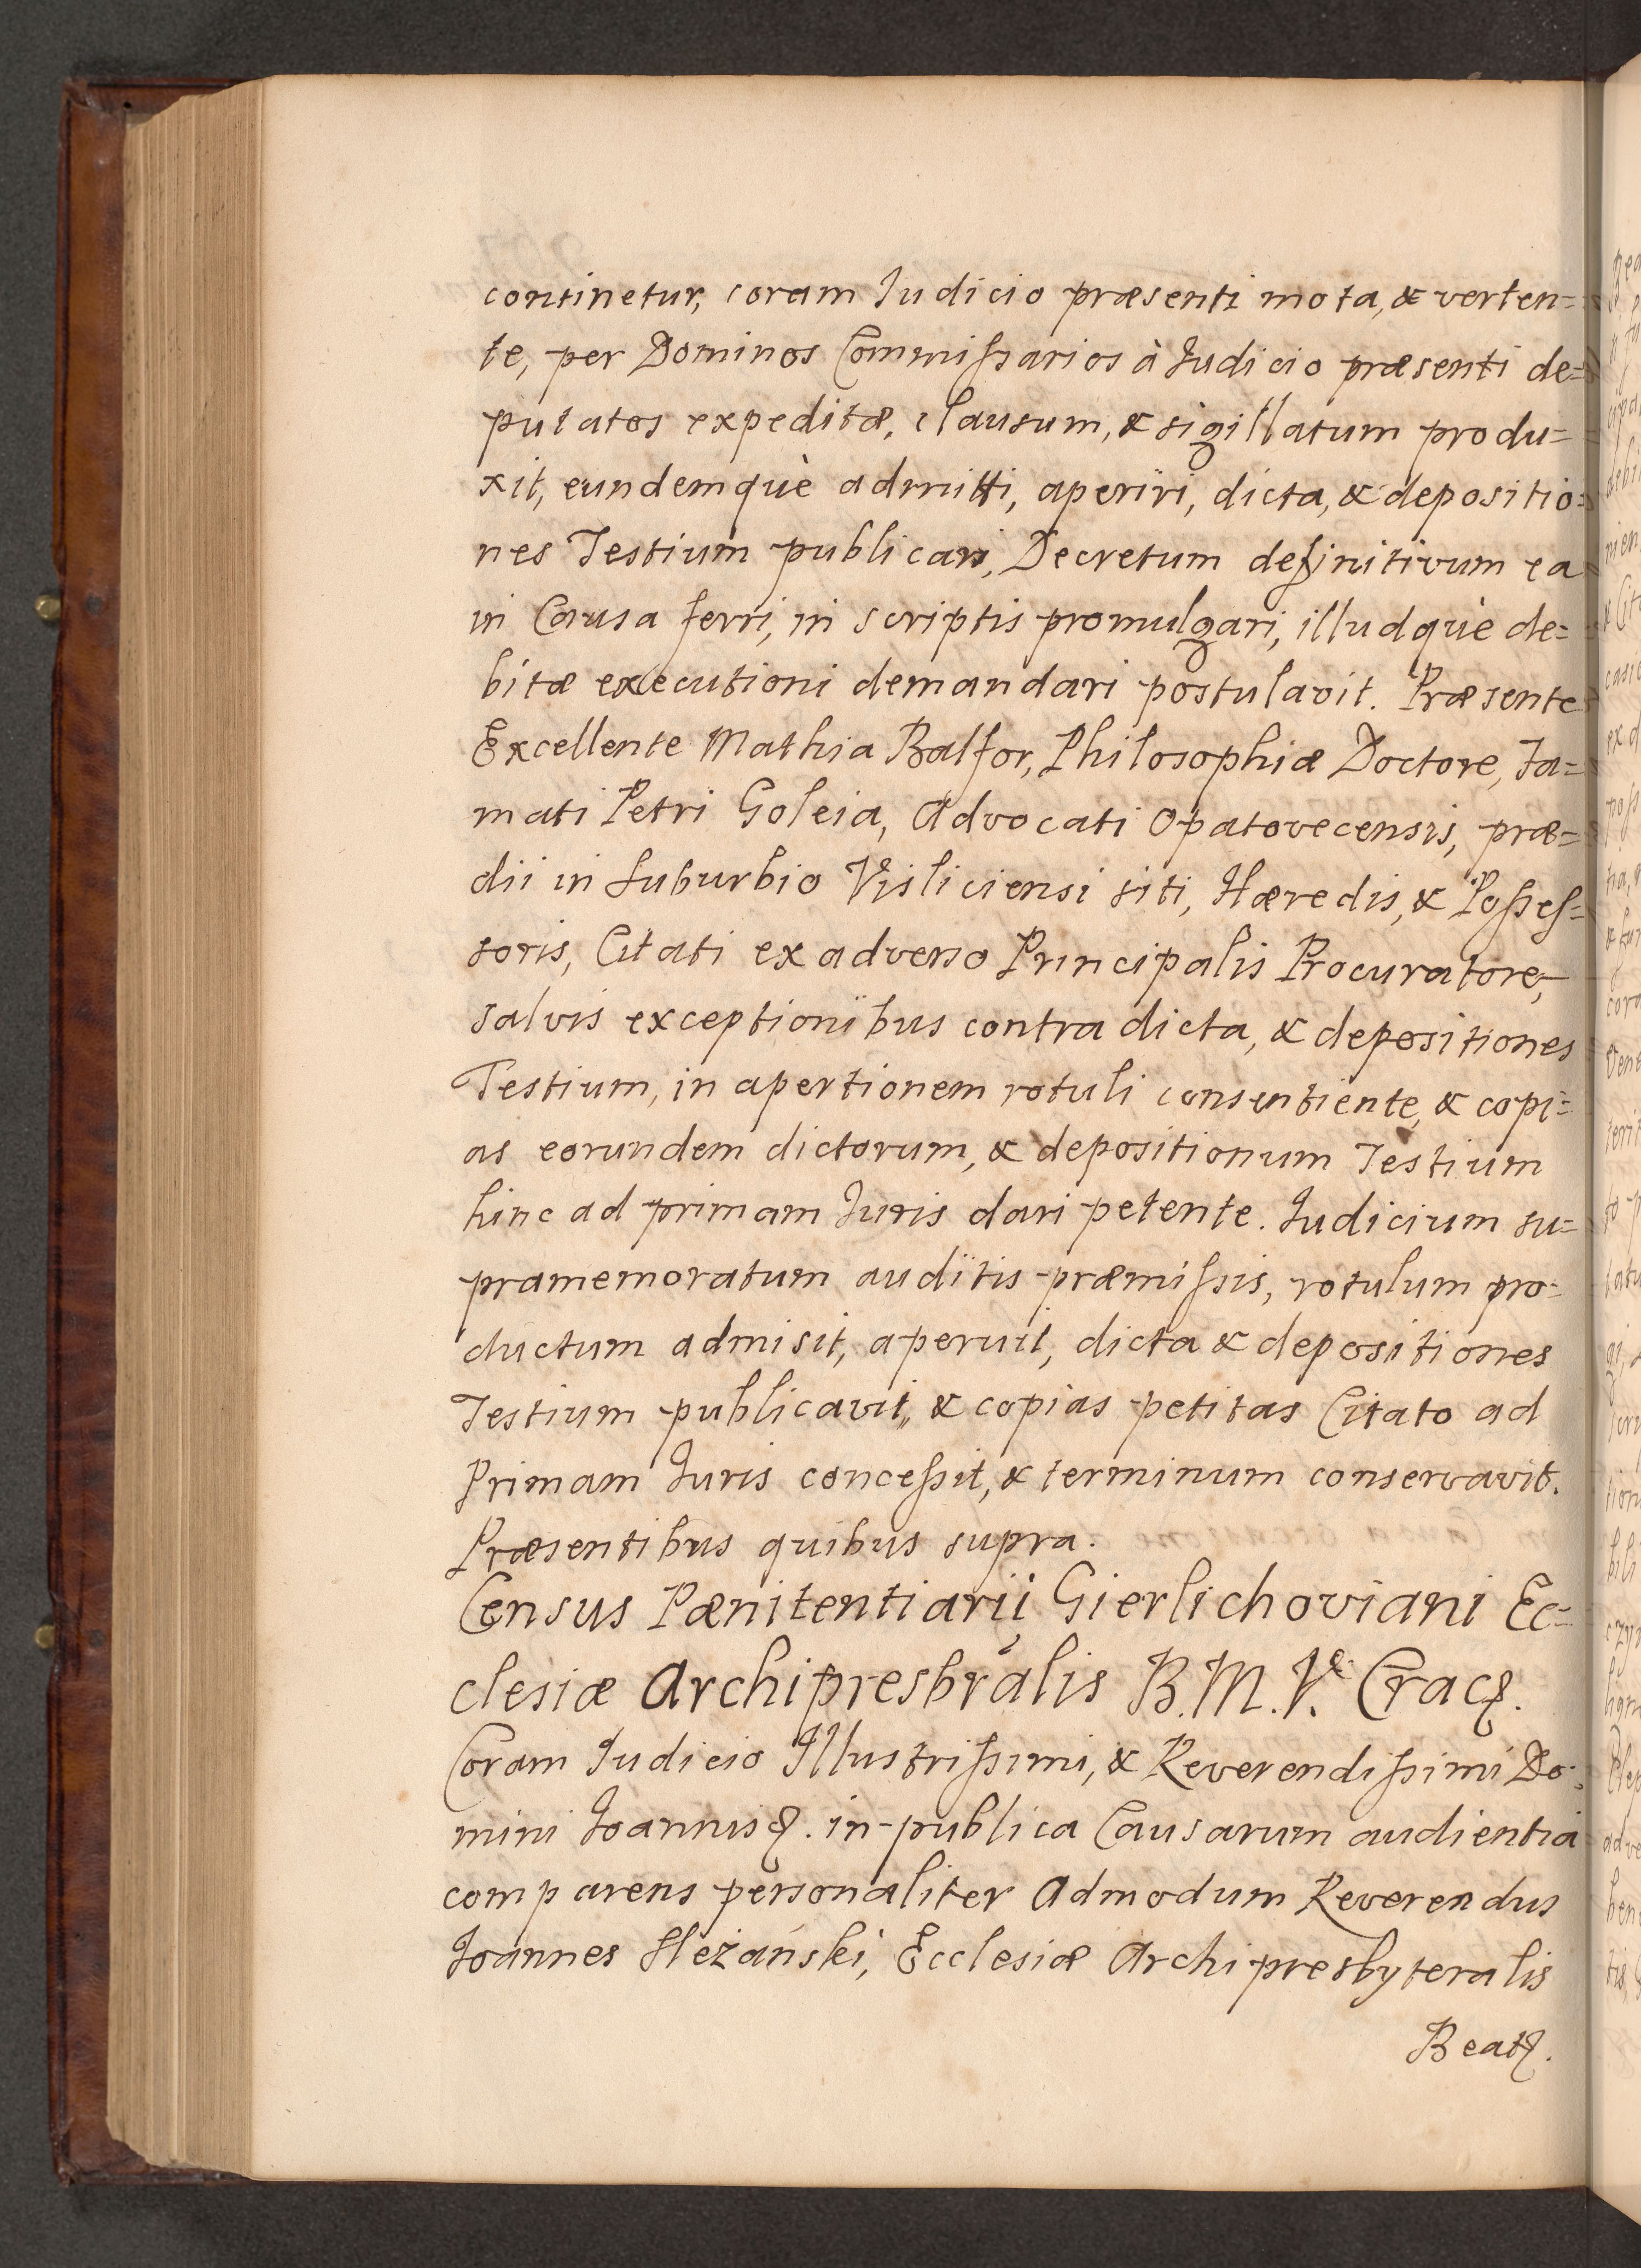 continetur, coram Iudicio præsenti mota, & verten=
te, per Dominos Commissarios à Iudicio præsenti de=
putatos expeditæ, clausum, & sigillatum produ=
xit, eundemquè admitti, aperiri, dicta, & depositio=
nes Testium publicari, Decretum definitivum ea
in Causa ferri, in scriptis promulgari, illudquè de=
bitæ executioni demandari postulavit. Præsente
Excellente Mathia Balfor, Philosophiæ Doctore, Fa=
mati Petri Goleia, Advocati Opatovecensis, præ=
dii in Suburbio Visliciensi siti, Hæredis, & Posses=
soris, Citati ex adverso Principalis Procuratore,
salvis exceptionibus contra dicta, & depositiones
Testium, in apertionem rotuli consentiente, & copi=
as eorundem dictorum, & depositionum Testium
hinc ad primam Iuris dari petente. Iudicium su=
pramemoratum auditis præmissis, rotulum pro=
ductum admisit, aperuit, dicta & depositiones
Testium publicavit, & copias petitas Citato ad
Primam Iuris concessit, & terminum conservavit.
Præsentibus quibus supra.
Census Pænitentiarij Gierlichoviani Ec=
clesiæ Archipresbralis B.M.V. Crac&.
Coram Iudicio Illustrissimi, & Reverendissimi Do=
mini Ioannis&. in publica Causarum audientia
comparens personaliter Admodum Reverendus
Ioannes Slezański, Ecclesiæ Archipresbyteralis
Beat&.